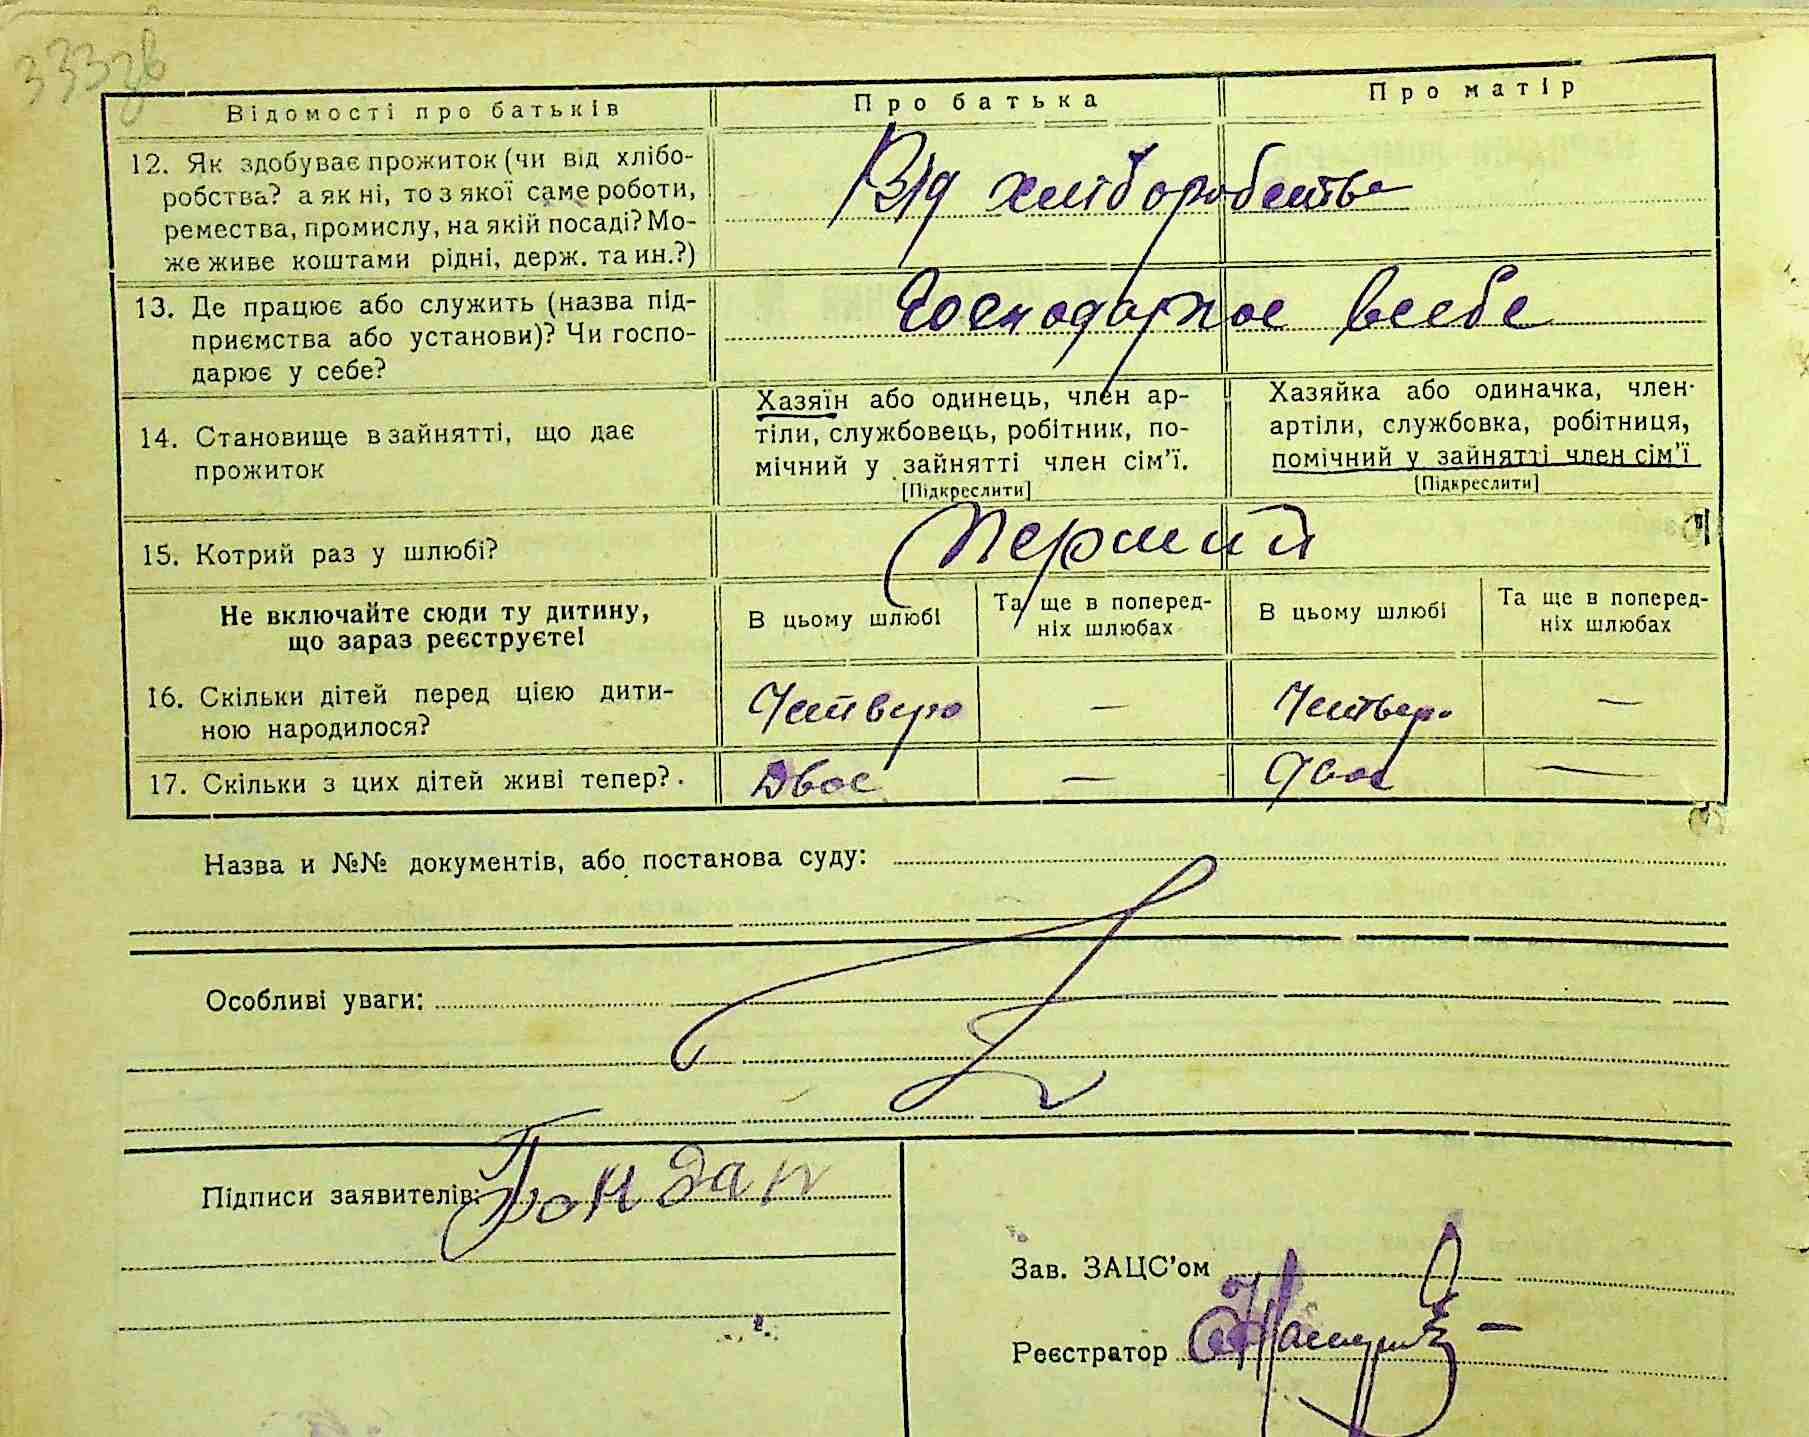 333зв
Відомості про батьків
Про батька
Про матір
12. Як здобуває прожиток (чи від хлібо-
робства? а як ні, то з якої саме роботи,
ремества, промислу, на якій посаді? Мо-
же живе коштами рідні, держ. та ин.?)
Від хліборобства
13. Де працює або служить (назва під-
приємства або установи)? Чи госпо-
дарює у себе?
Господарює всебе
14. Становище в зайнятті, що дає
прожиток
Хазяїн або одинець, член ар-
тіли, службовець, робітник, по-
мічний у зайнятті член сім'ї.
[Підкреслити]
Хазяйка або одиначка, член-
артіли, службовка, робітниця,
помічний у зайнятті член сім'ї
[Підкреслити]
15. Котрий раз у шлюбі?
Перший
Не включайте сюди ту дитину,
що зараз реєструєте!
В цьому шлюбі
Та ще в поперед-
ніх шлюбах
В цьому шлюбі
Та ще в поперед-
ніх шлюбах
16. Скільки дітей перед цією дити-
ною народилося?
Четверо
—
Четверо
—
17. Скільки з цих дітей живі тепер?
Двоє
—
Двоє
—
Назва и №№ документів, або постанова суду:
Особливі уваги:
Підписи заявителів:
Зав. ЗАЦС'ом
Реєстратор